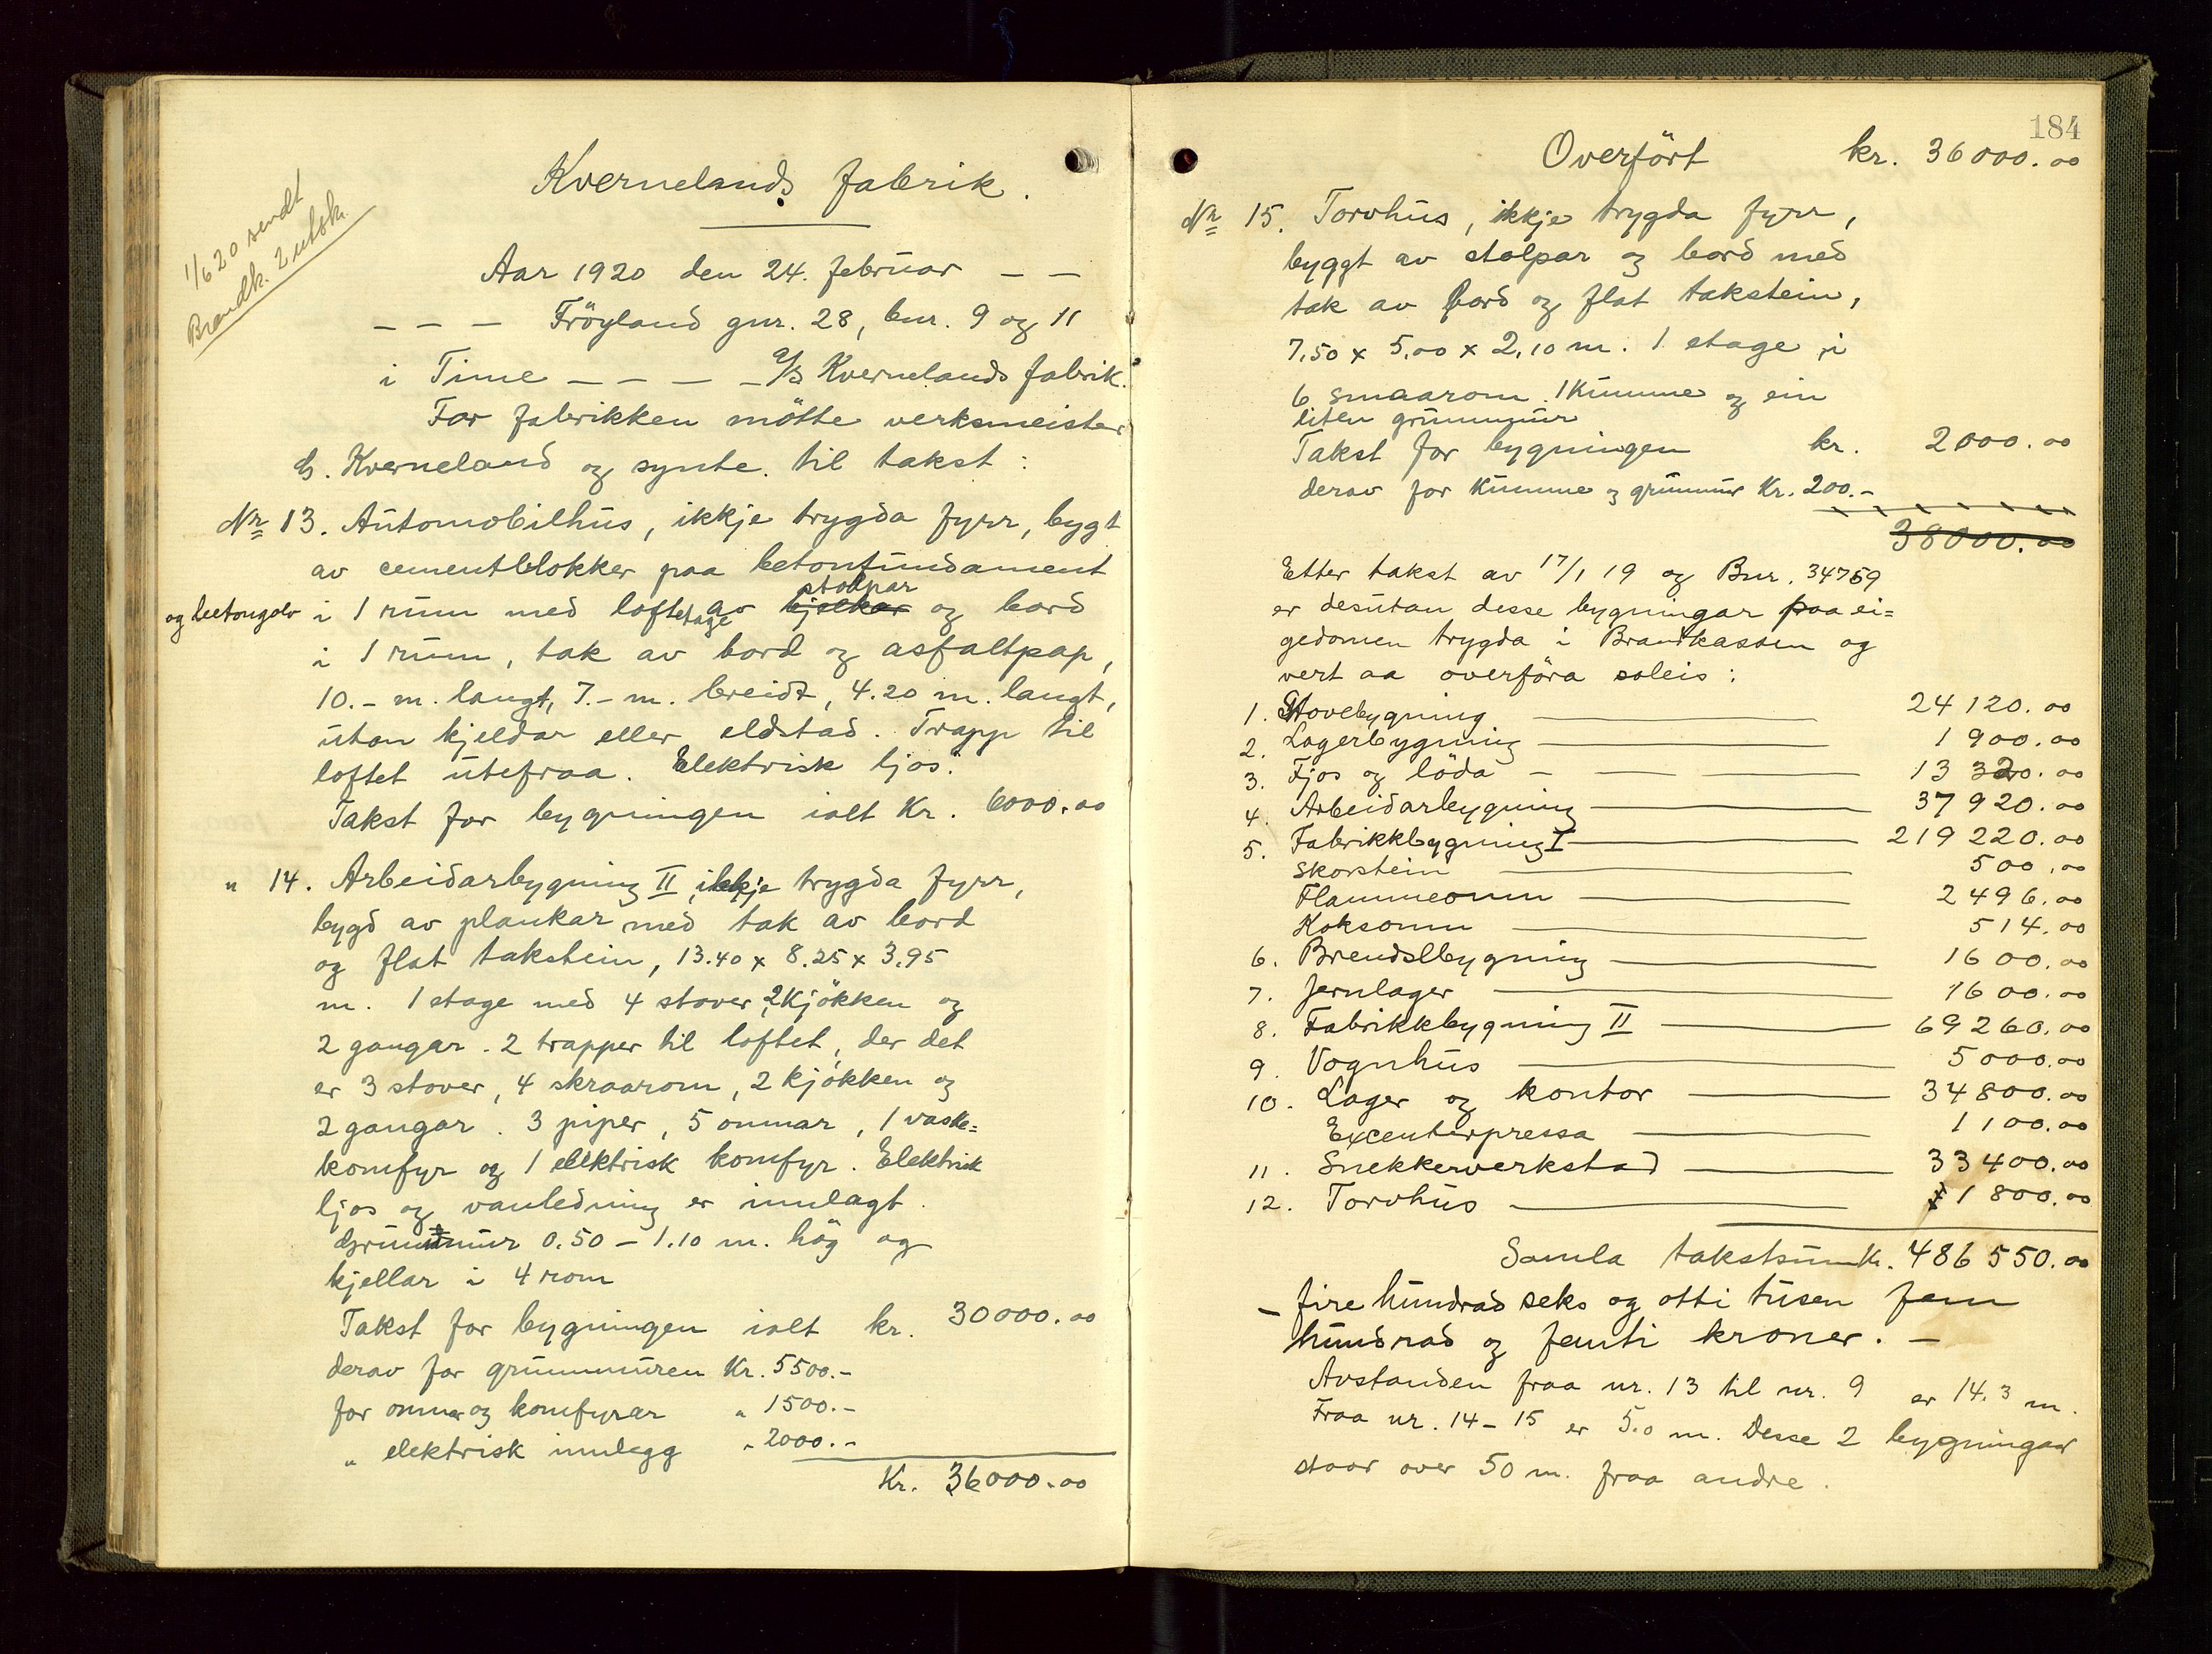 1/6 20 sendt
Brandk. 2 utsk.
Kvernelands fabrik.
Aar 1920 den 24. februar – –
– – – Fröyland gnr. 28, bnr. 9 og 11
i Time – – – – A/S Kvernelands fabrik.
For fabrikken mötte verksmeister
Kverneland og synte til takst:
Nr 13. Automobilhus, ikkje trygda fyrr, bygt
av cementblokker paa betonfundament
og betongolv i 1 rum med loftetage av bjelkar stolpar og bord
i 1 rum, tak av bord og asfaltpap,
10.- m. langt, 7.- m. breidt, 4.20 m. langt,
utan kjeldar eller eldstad. Trapp til
loftet utefraa. Elektrisk ljos.
Takst for bygningen ialt Kr. 6000.00
" 14. Arbeidarbygning II, ikkje trygda fyrr,
bygd av plankar med tak av bord
og flat takstein, 13.40 x 8.25 x 3.95
m. 1 etage med 4 stover, 2 kjökken og
2 gangar. 2 trapper til loftet, der det
er 3 stover, 4 skraarom, 2 kjökken og
2 gangar. 3 piper, 5 omnar, 1 vaske=
komfyr og 1 elektrisk komfyr. Elektrisk
ljos og vanledning er innlagt.
Grunnmur 0.50 – 1.10 m. hög og
kjellar i 4 rom
Takst for bygningen ialt kr. 30000.00
derav for grunnmuren Kr. 5500.–
for omnar og komfyrar " 1500.–
" elektrisk innlegg " 2000.–
Kr. 36000.00
184
Overfört kr. 36000.00
Nr 15. Torvhus, ikkje trygda fyrr,
byggt av stolpar og bord med
tak av bord og flat takstein,
7.50 x 5.00 x 2.10 m. 1 etage i
6 smaarom. 1 Kumme og ein
liten grunnmur
Takst for bygningen kr. 2000.00
derav for Kumme og grunnmur Kr. 200.–
38000.00
Etter takst av 17/1 19 og Bnr. 34759
er desutan desse bygningar paa ei=
gedomen trygda i Brandkassen og
vert aa overföra soleis:
1. Stovebygning 24120.00
2. Lagerbygning 1900.00
3. Fjos og löda 13320.00
4. Arbeidarbygning 37920.00
5. Fabrikkbygning I 219220.00
Skorstein 500.00
Flammeomn 2496.00
Koksomn 514.00
6. Brendslbygning 1600.00
7. Jernlager 1600.00
8. Fabrikkbygning II 69260.00
9. Vognhus 5000.00
10. Lager og kontor 34800.00
Excenterpressa 1100.00
11. Snekkerverkstad 33400.00
12. Torvhus 1800.00
Samla takstsum Kr. 486550.00
– fire hundrad seks og otti tusen fem
hundrad og femti kroner. –
Avstanden fraa nr. 13 til nr. 9 er 14.3 m.
Fraa nr. 14 – 15 er 5.0 m. Desse 2 bygningar
staar over 50 m. fraa andre.